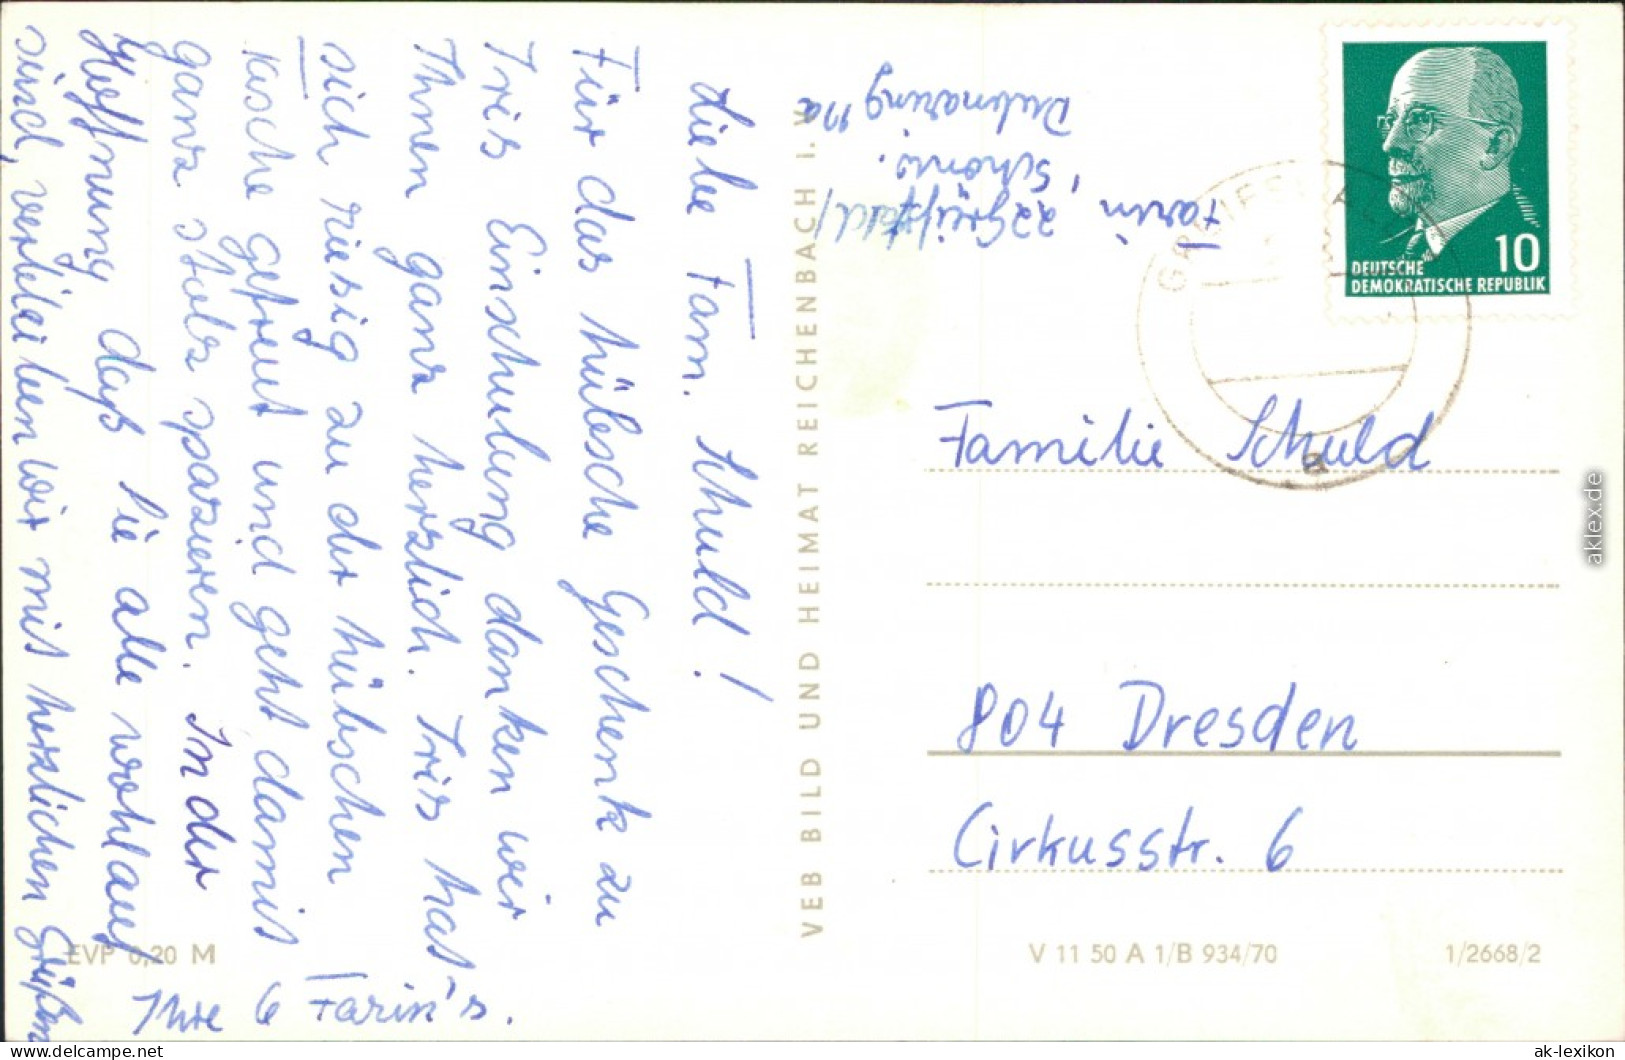 Liebe Fam. Schuld!
Für das hübsche Geschenk zu
Iris Einschulung danken wir
Ihnen ganz herzlich. Iris hat
sich riesig zu der hübschen
Tasche gefreut und geht damit
ganz stolz spazieren. In der
Hoffnung daß Sie alle wohlauf
sind, verbleiben wir mit herzlichen Grüßen
Ihre 6 Farin's.
VEB BILD UND HEIMAT REICHENBACH I. V.
Farin, 22 Greifswald /
Schönw.
11a
DEUTSCHE
DEMOKRATISCHE REPUBLIK
10
GREIFSWALD
a
Familie Schuld
804 Dresden
Cirkusstr. 6
EVP 0,20 M
V 11 50 A 1/B 934/70
1/2668/2
aklex.de
ak-ansichtskarten.de
ak-lexikon